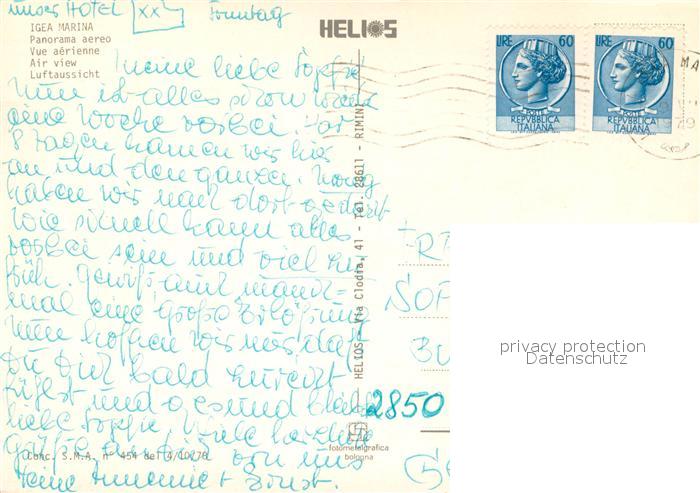 unser HOTEL XX Sonntag
HELIOS
IGEA MARINA
Panorama aereo
Vue aérienne
Air view
Luftaussicht
LIRE 60
POSTE
REPVBBLICA
ITALIANA
LIRE 60
POSTE
REPVBBLICA
ITALIANA
Meine liebe
Nun ist alles schon wieder
eine Woche vorbei. Vor
8 Tagen kamen wir hier
an und den ganzen
haben wir nach dort
Wie schnell kann alles
vorbei sein und viel zu
früh. Gewiß auch manch-
mal eine große Erlösung
nun hoffen wir nur, daß
Du Dich bald
fühlst und gesund
liebe viele herzliche
Grüße an von uns
Deine Annemie + Ernst.
HELIOS - Via Clodia, 41 - Tel. 28611 - RIMINI
FR
SOP
BU
2850
fotometalgrafica
bologna
Conc. S.M.A. n° 454 del 4/10/70
privacy protection
Datenschutz